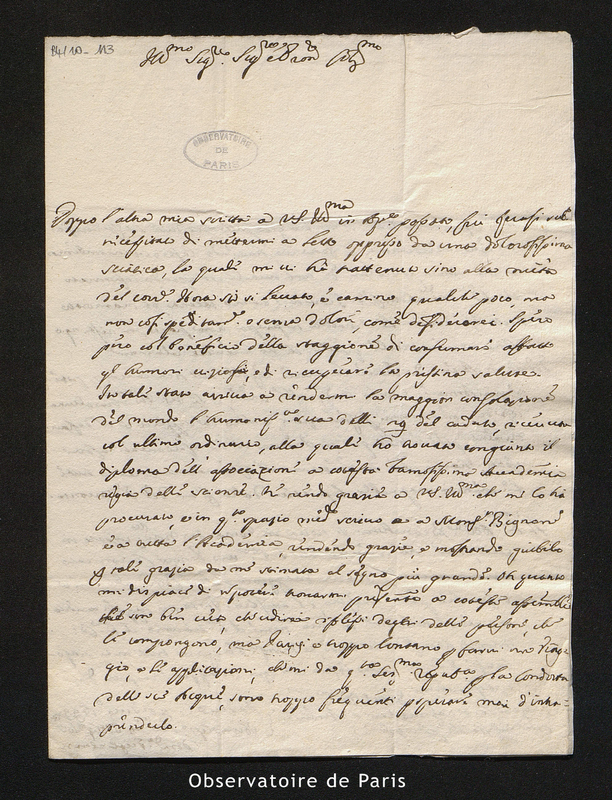 B4/10-113
Ill.mo Sig.re Sig.re e Pron
OBSERVATOIRE
DE
PARIS
Doppo l'altra mia scritta a VS. Ill.ma in passato, fui quasi
necessitato di mettermi a letto oppresso da una dolorosissima
sciatica, la quale mi ci hà trattenuto sino alla metà
del corr. Hora stò sù levato, e camino qualche poco, ma
non così speditam.e o senza dolori, come desiderarei. Spero
però col beneficio della staggione di consumare affatto
gl'humori viziosi, e di ricuperare la pristina salute.
In tale stato arriva a rendermi la maggior consolazione
del mondo l'humaniss. sua delli 29 del caduto, ricevuta
col ultimo ordinario, alla quale hò trovato congiunto il
diploma dell'associazione a cotesta famosissima Accademia
regia delle scienze. Ne rendo grazie a VS. Ill.ma che me lo hà
procurato, e in q.to spazio scrivo a Mons.r Bignon
e a tutta l'Accademia, rendendo grazie, e mostrando giubilo
tale grazia da me stimata al segno più grande. Oh quanto
mi dispiace di non potermi trovare presente a coteste assemblee
ben certo che udirei riflessi degni delle persone, che
le compongono, ma Parigi è troppo lontano p farvi un viag
gio, e le applicazioni, che mi dà q.ta Ser.ma republica p la condotta
delle sue acque, sono troppo frequenti per mai d'intra=
prenderlo.
Observatoire de Paris